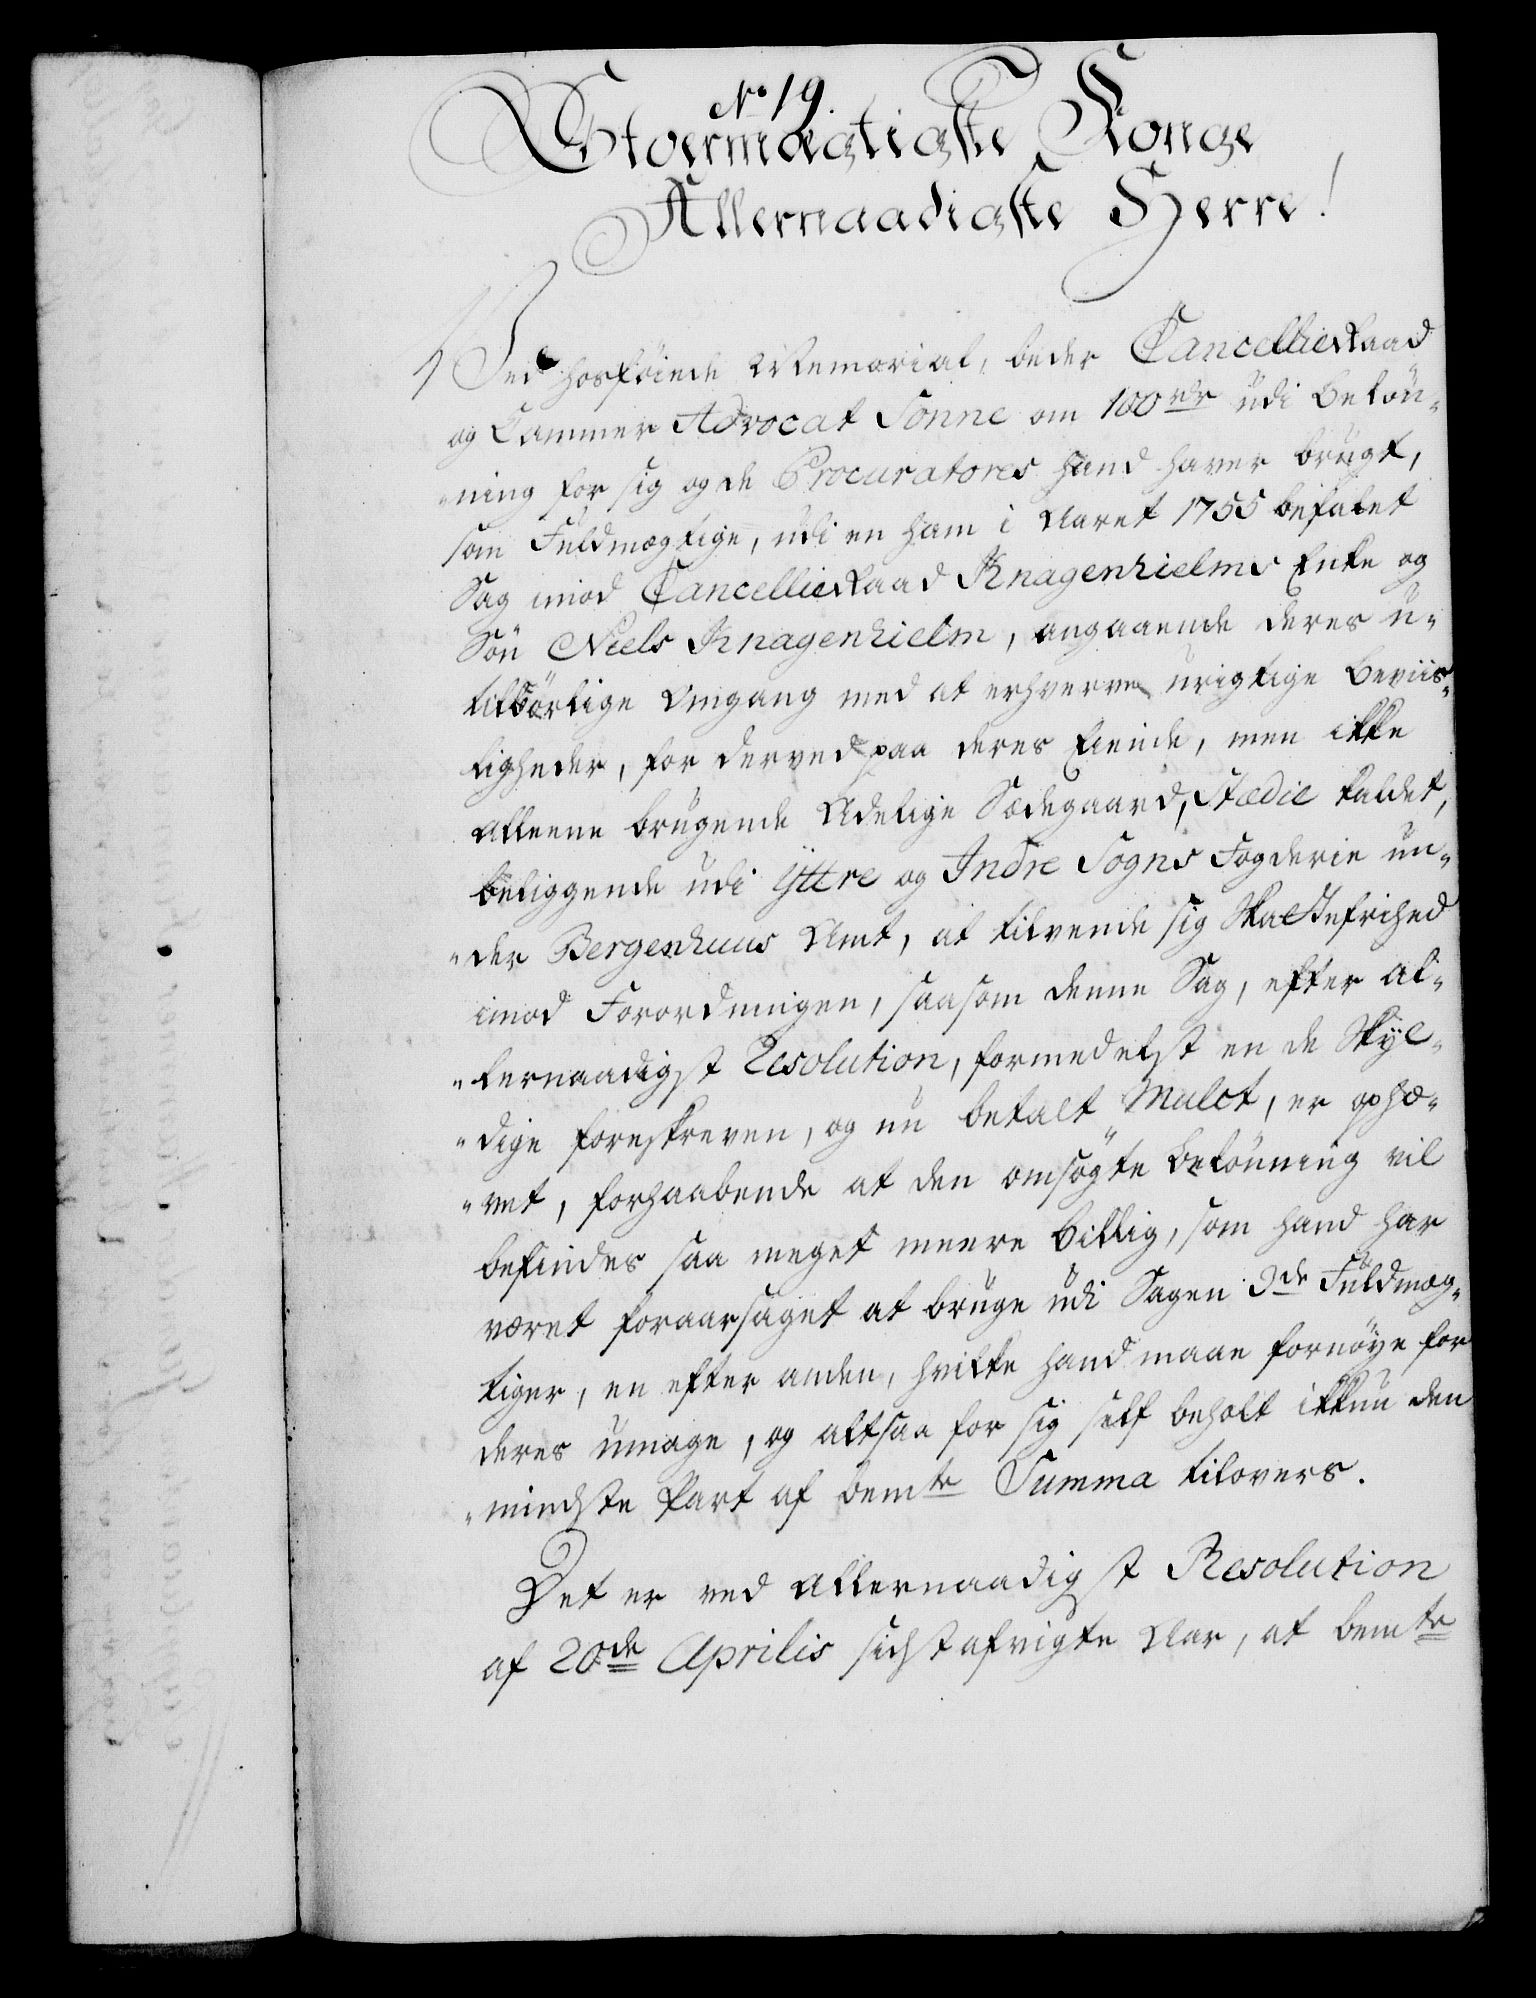 No 19.
Stoermægtigste Konge
Allernaadigste Herre!
Ved hosføiede Memorial, beder CancellieRaad
og Cammer Advocat Sonne om 100 rdr udi Belön-
"ning for sig og de Procuratores hand haver brugt,
som Fuldmægtige, udi en ham i Aaret 1755 befalet
Sag imod CancellieRaad Knagenhielms Enke og
Sön Niels Knagenhielm, angaaende deres u-
tilbörlige Omgang med at erhverve urigtige Beviis-
ligheder, for derved paa deres Eiende, men ikke
alleene brugende Adelige Sædegaard, Stædie kaldet,
beliggende udi Ÿttre og Indre Sogns Fogderie un-
"der Bergenhuus Amt, at tilvende sig Skattefrihed
imod Forordningen, saasom denne Sag, efter al-
"lernaadigst Resolution, formedelst en de Skÿl-
"dige foreskreven, og nu betalt Mulct, er ophæ-
"vet, forhaabende at den omsögte Belönning vil
befindes saa meget meere billig, som hand har
været foraarsaget at bruge udi Sagen 3de Fuldmæg-
tiger, en efter anden, hvilke hand maae fornöye for
deres umage, og altsaa for sig self beholt ikkun den
"mindste Part af bemte Summa tilovers.
Det er ved allernaadigst Resolution
af 20de Aprilis sidstafvigte Aar, at bemte